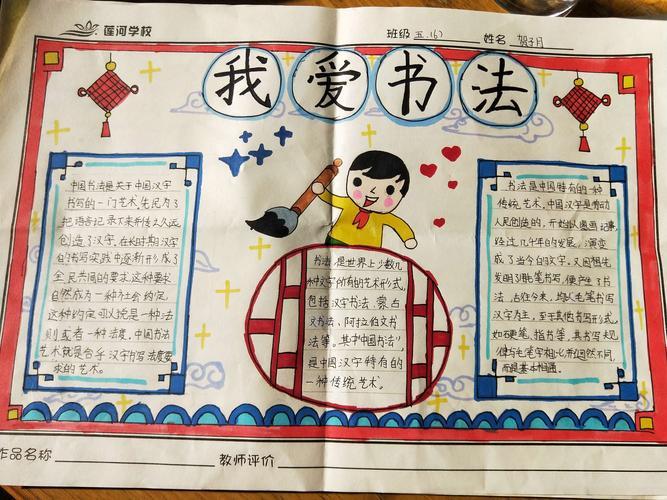 莲河学校
班级 五.(6) 姓名 贺子月
我爱书法
中国书法是关于中国汉字
书写的一门艺术,先民为了
把语言记录下来并传之久远,
创造了汉字,在长时期汉字
的书写实践中逐渐形成了
全民共同的要求,这种要求
自然成为一种社会约定,
这种约定可以说是一种法
则或者一种法度,中国书法
艺术就是合乎汉字书写法度要
求的艺术。
书法是世界上少数几
种文字所有的艺术形式,
包括汉字书法、蒙古
文书法、阿拉伯文书
法等。其中"中国书法"
是中国汉字特有的
一种传统艺术。
书法是中国特有的一种
传统艺术,中国汉字是劳动
人民创造的,开始以图画记事,
经过几千年的发展,演变
成了当今的文字,又因祖先
发明了用毛笔书写,便产生了书
法,古往今来,均以毛笔书写
汉字为主,至于其他书写形式,
如硬笔、指书等,其书写规
律与毛笔字相比并迥然不同,
而是基本相通。
作品名称
教师评价